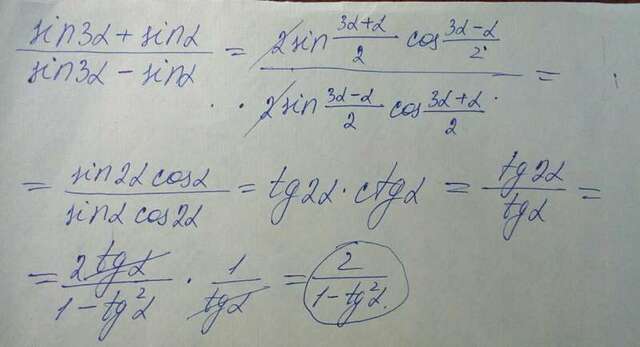 (sin3α + sinα)/(sin3α - sinα) = (2sin (3α+α)/2 cos (3α-α)/2)/(2sin (3α-α)/2 cos (3α+α)/2) =
= (sin2α cosα)/(sinα cos2α) = tg2α · ctgα = tg2α/tgα =
= 2tgα/(1 - tg²α) · 1/tgα = 2/(1 - tg²α)